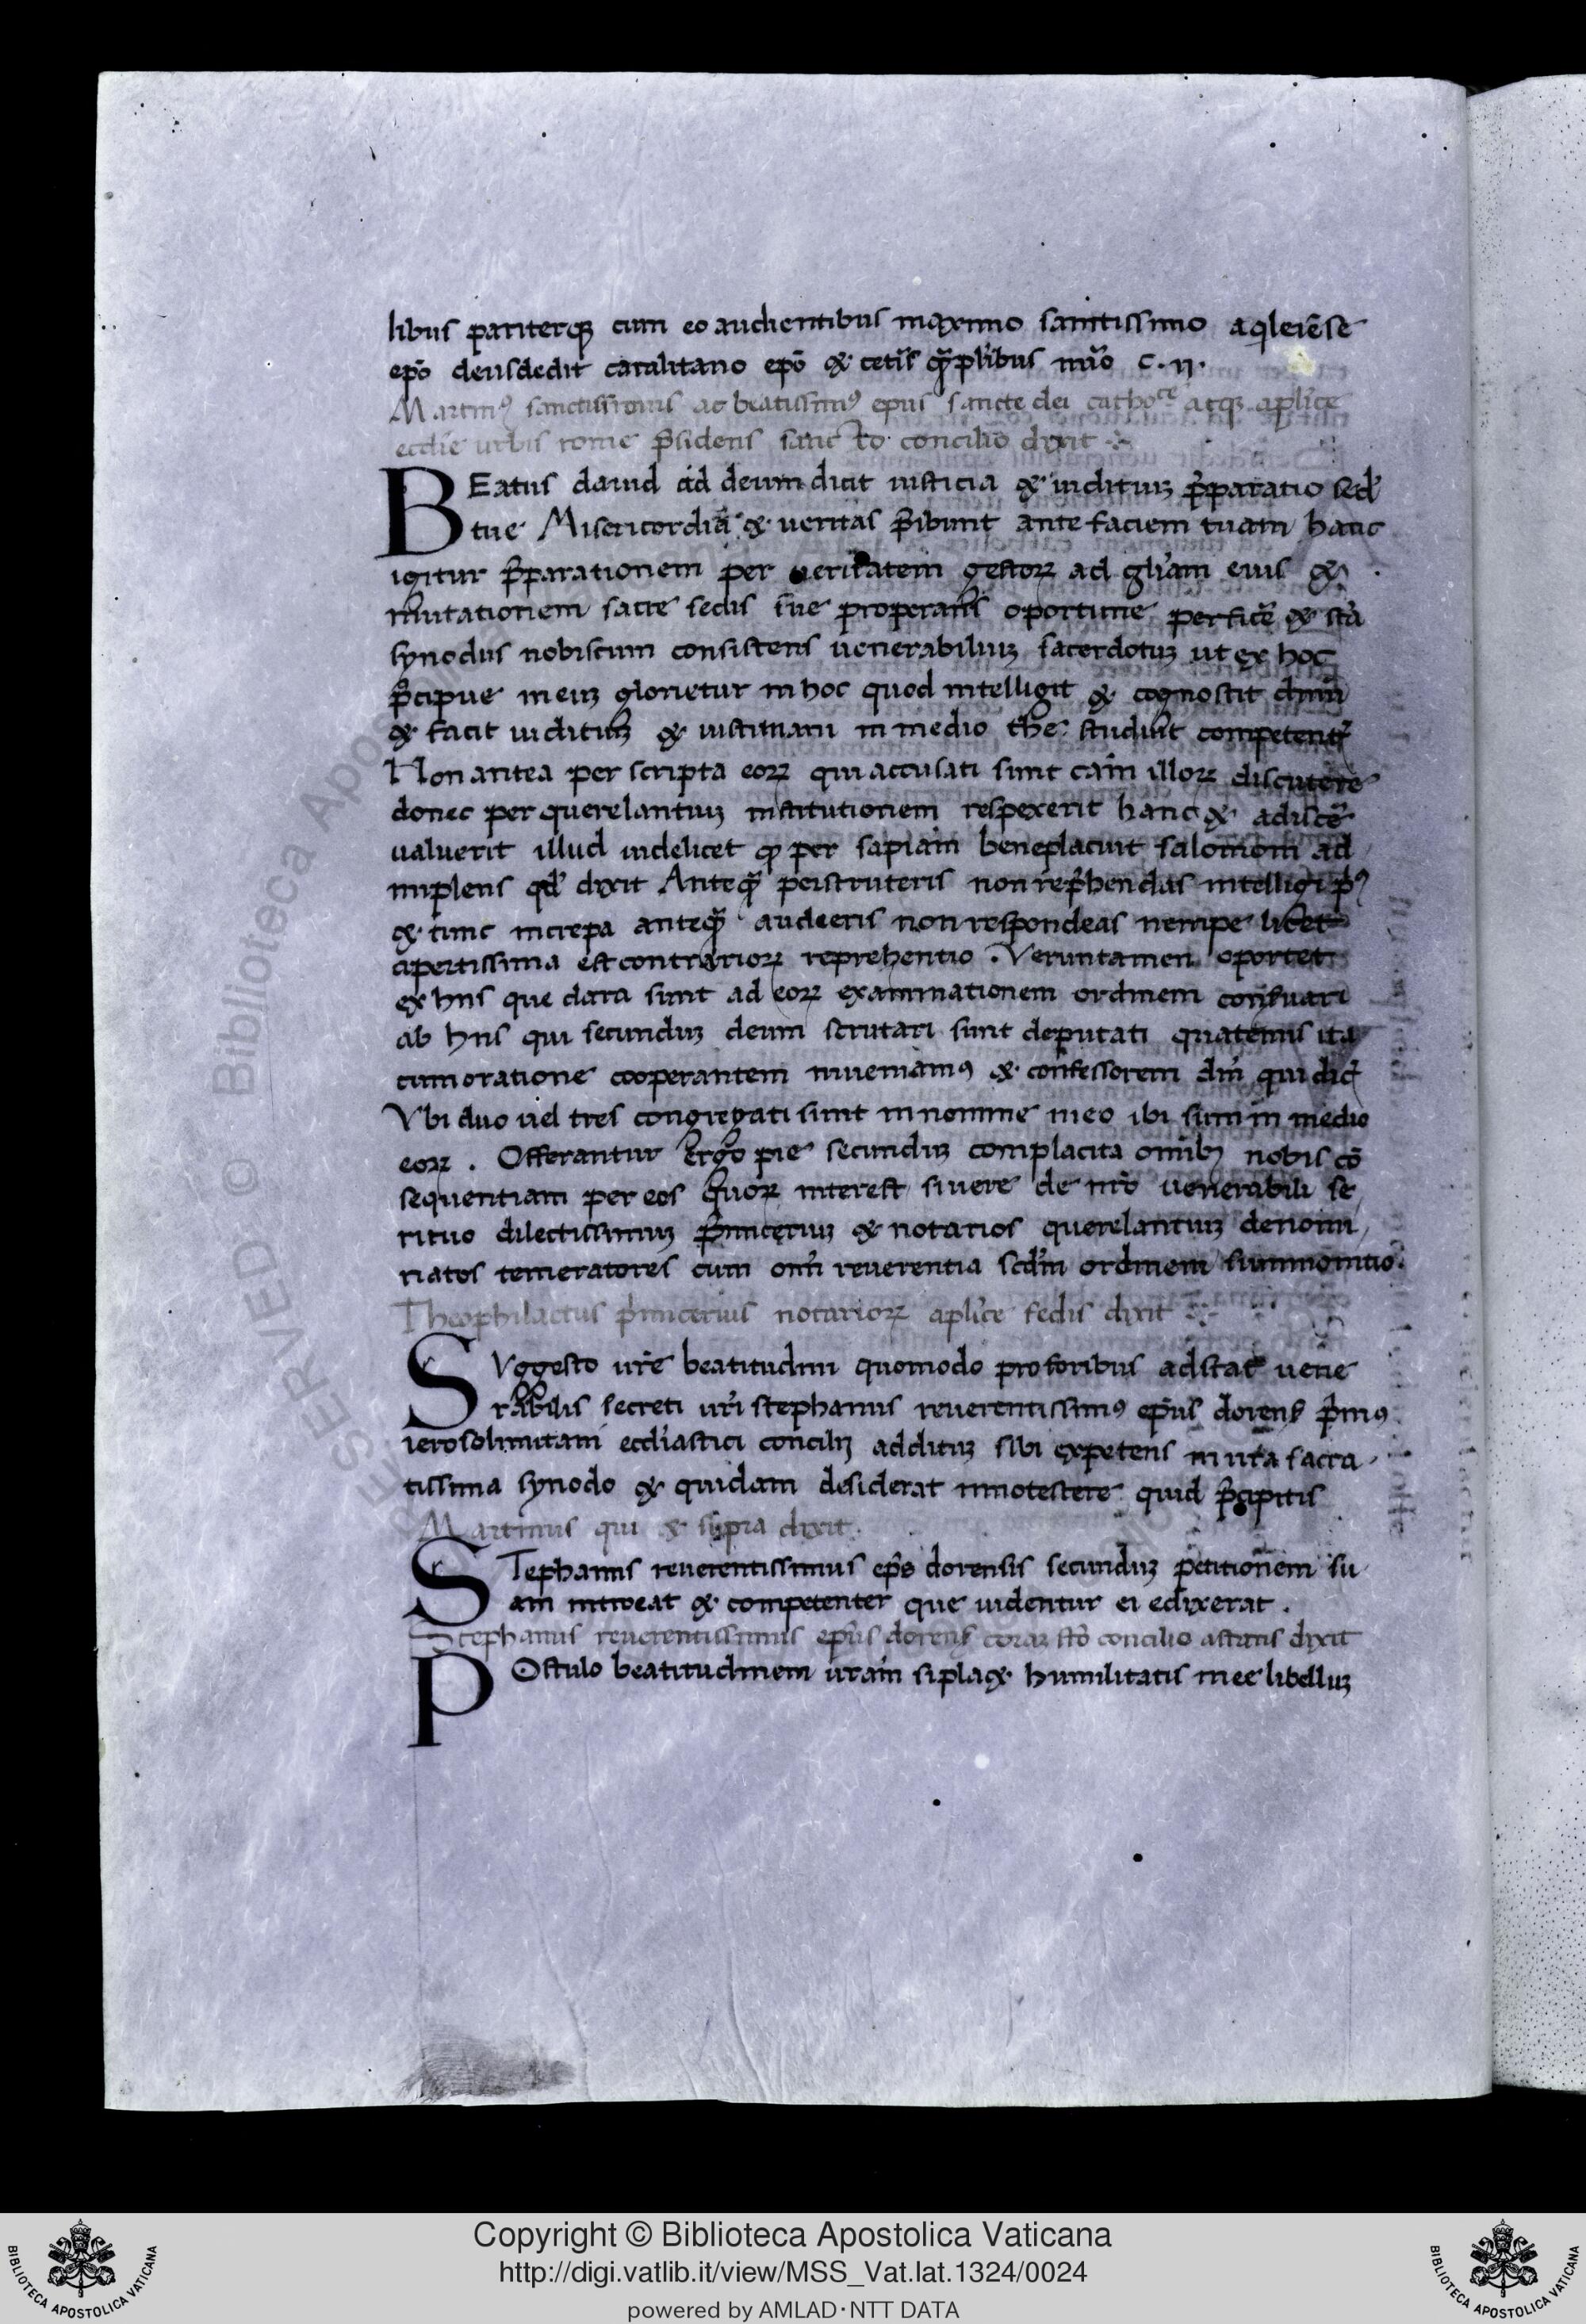 libus pariterq cum eo audientibus maximo sanctissimo aqleiẽse
epõ deusdedit caralitano epõ & cetis quãplibus nũo c.ij.
Martin9 sanctissimus ac beatissim9 epus sancte dei cathoce atq aplice
ecclie urbis rome psidens sancto concilio dixit
BEatus dauid ad deum dicit iusticia & iuditiuȝ pparatio sed
tue Misericordia & ueritas pibunt ante faciem tuam hanc
igitur pparationem per ueritatem gestoꝝ ad gliam eius &
mutationem sacre sedis sue properans oportune perfice & sca
synodus nobiscum consistens uenerabiliuȝ sacerdotuȝ ut ex hoc
pcipue in euȝ glorietur in hoc quod intelligit & cognoscit dnm
& facit iuditiuȝ & iustitiam in medio the studuit competent
Non antea per scripta eoꝝ qui accusati sunt cam illoꝝ discutere
donec per querelantiuȝ institutionem respexerit hanc & adisce
ualuerit illud uidelicet q per sapiam beneplacuit salomoni ad
implens qd dixit Anteq pscruteris non rephendas intelligi p9
& tunc increpa anteq audieris non respondeas nempe licet
apertissima est contrarioꝝ reprehentio . Veruntamen oportet
ex hiis que data sunt ad eoꝝ examinationem ordinem conseruari
ab hiis qui secunduȝ deum scrutari sunt deputati quatenus ita
cum oratione cooperantem inueniam9 & confessorem dm qui dic
Vbi duo uel tres congregati sunt in nomine meo ibi sum in medio
eoꝝ . Offerantur ergo pie secunduȝ complacita omib; nobis cõ
sequentiam per eos quoꝝ interest siuere de nro uenerabili se
rituo dilectissimuȝ pmiceriuȝ & notarios querelantiuȝ denomi
natos temeratores cum omi reuerentia scdm ordinem summonitio.
Theophilactus pmicerius notarioꝝ aplice sedis dixit
SVggesto ure beatitudini quomodo pro foribus adstat uene
rabilis secreti uri stephanus reuerentissim9 epus dorens pm9
ierosolimitani eccliastici concilij additum sibi expetens in ura sacra
tissima synodo & quidam desiderat innotescere quid pcipitis
Martinus qui & supra dixit.
STephanus reuerentissimus eps dorensis secunduȝ petitionem su
am introeat & competenter que uidentur ei edixerat .
Stephanus reuerentissimus epus dorens coraȝ sco concilio astans dixit
POstulo beatitudinem uram si placȝ humilitatis mee libelluȝ
Copyright © Biblioteca Apostolica Vaticana
http://digi.vatlib.it/view/MSS_Vat.lat.1324/0024
powered by AMLAD·NTT DATA
BIBLIOTECA APOSTOLICA VATICANA
BIBLIOTECA APOSTOLICA VATICANA